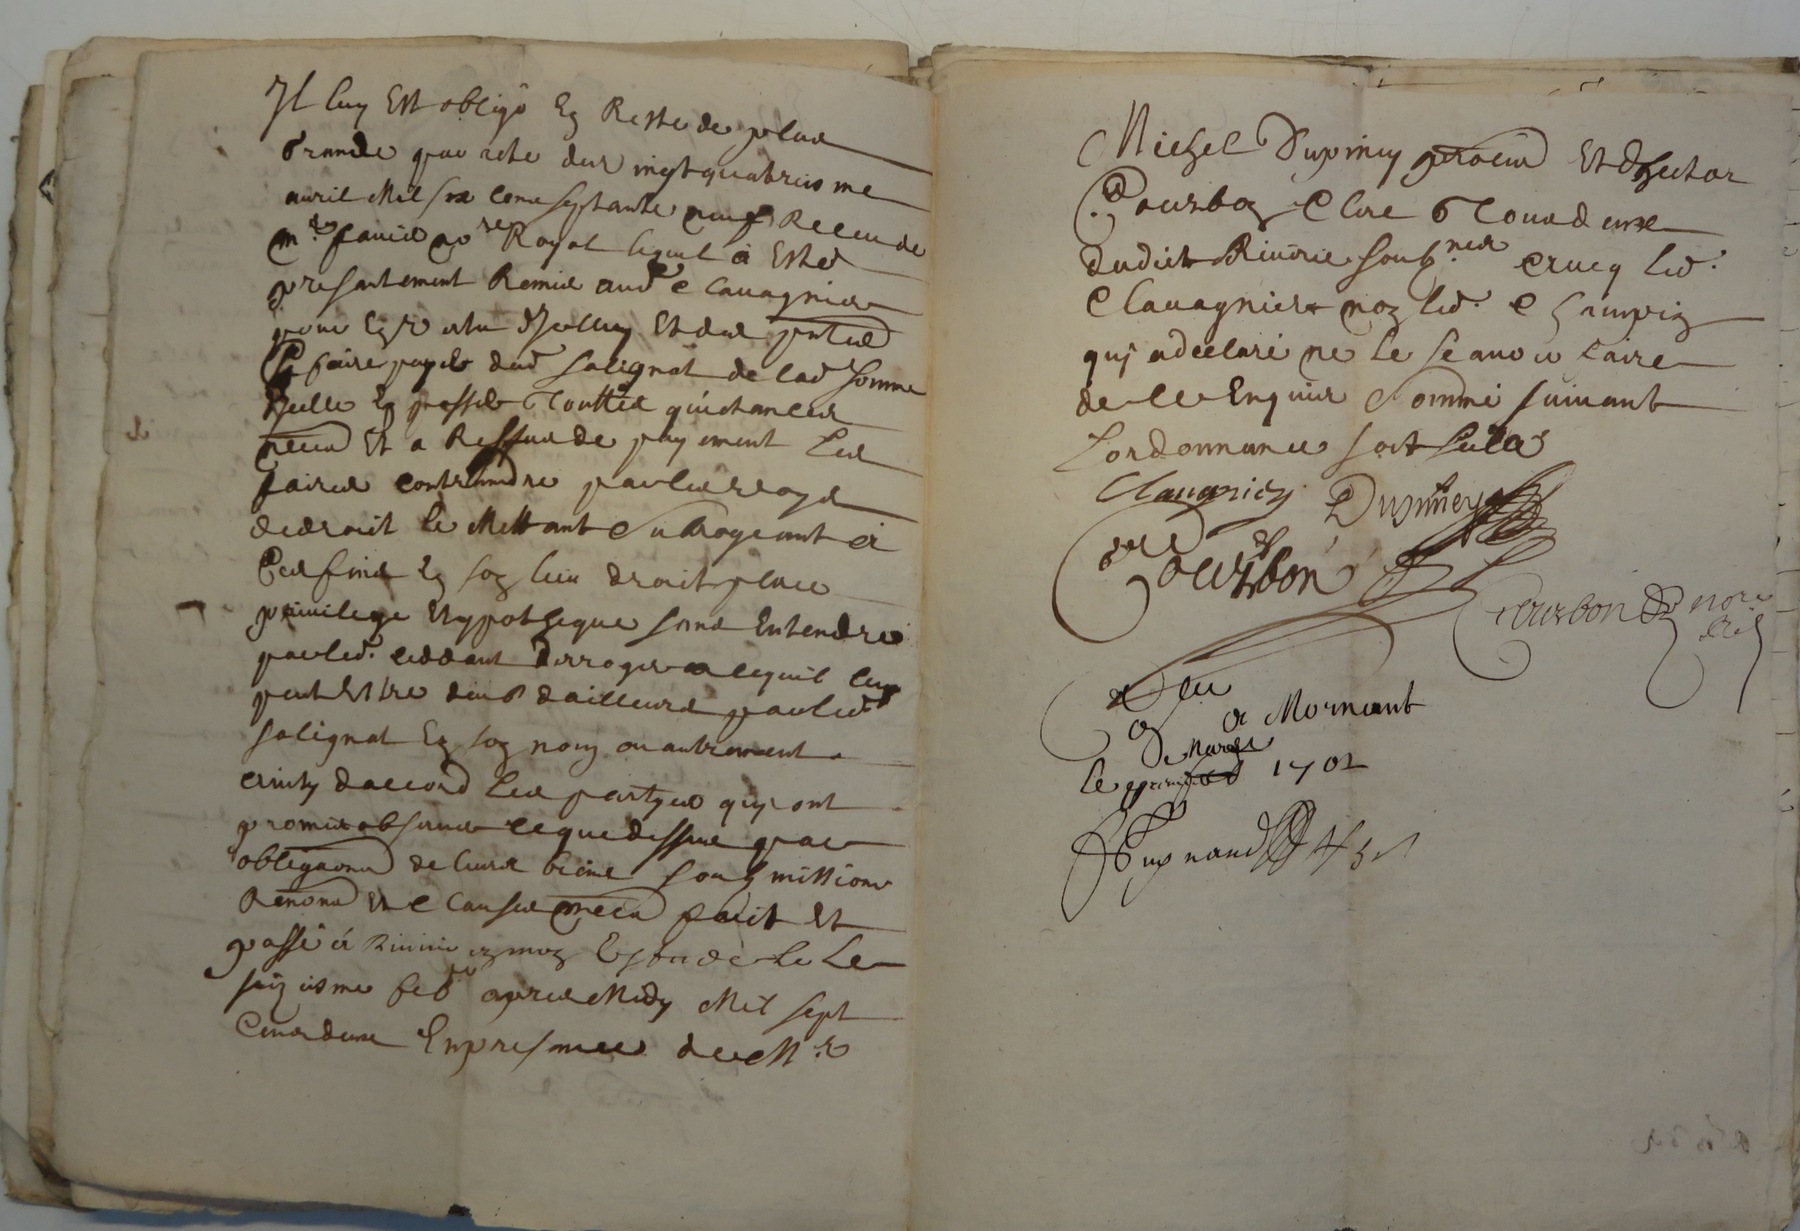 Il luy est obligé en reste de plus
grande par acte du vingt quatriesme
avril mil six cens septante neuf receu de
mr favie nore Royal lequel a esté
presentement remis aud Clavagnier
pour en vertu djcelluy et des pntes
se faire payer dud salignat de lad somme
jcelle en passer touttes quictances
necess et a reffus de payement les
faire contraindre par les voyes
de droit le mettant subrogeant a
ces fins en son lieu droit place
privilege et ypotheque sans entendre
par led. ceddant derroger a ce quil luy
peut estre deub dailleurs par led
salignat en son nom ou autrement
ainsy daccord les partyes quy ont
promis observer ce que dessus par
obligaons de leurs biens soubmissions
Renons et clauses necess fait et
passé a Rivirie en mon estude le
seiziesme feb apres midy mil sept
cens deux en presance de Mr
Michel Dupiney et hector
Courbon clerc tous deux
dudict Rivirie soubsnes avecq led.
Clavagnier non led. Champin
qui a declaré ne le scavoir faire
de ce enquis et sommé suivant
lordonnance
Clavagnier Dupiney
Courbon
Courbon nore
a Mornant
de Mars
le 1702